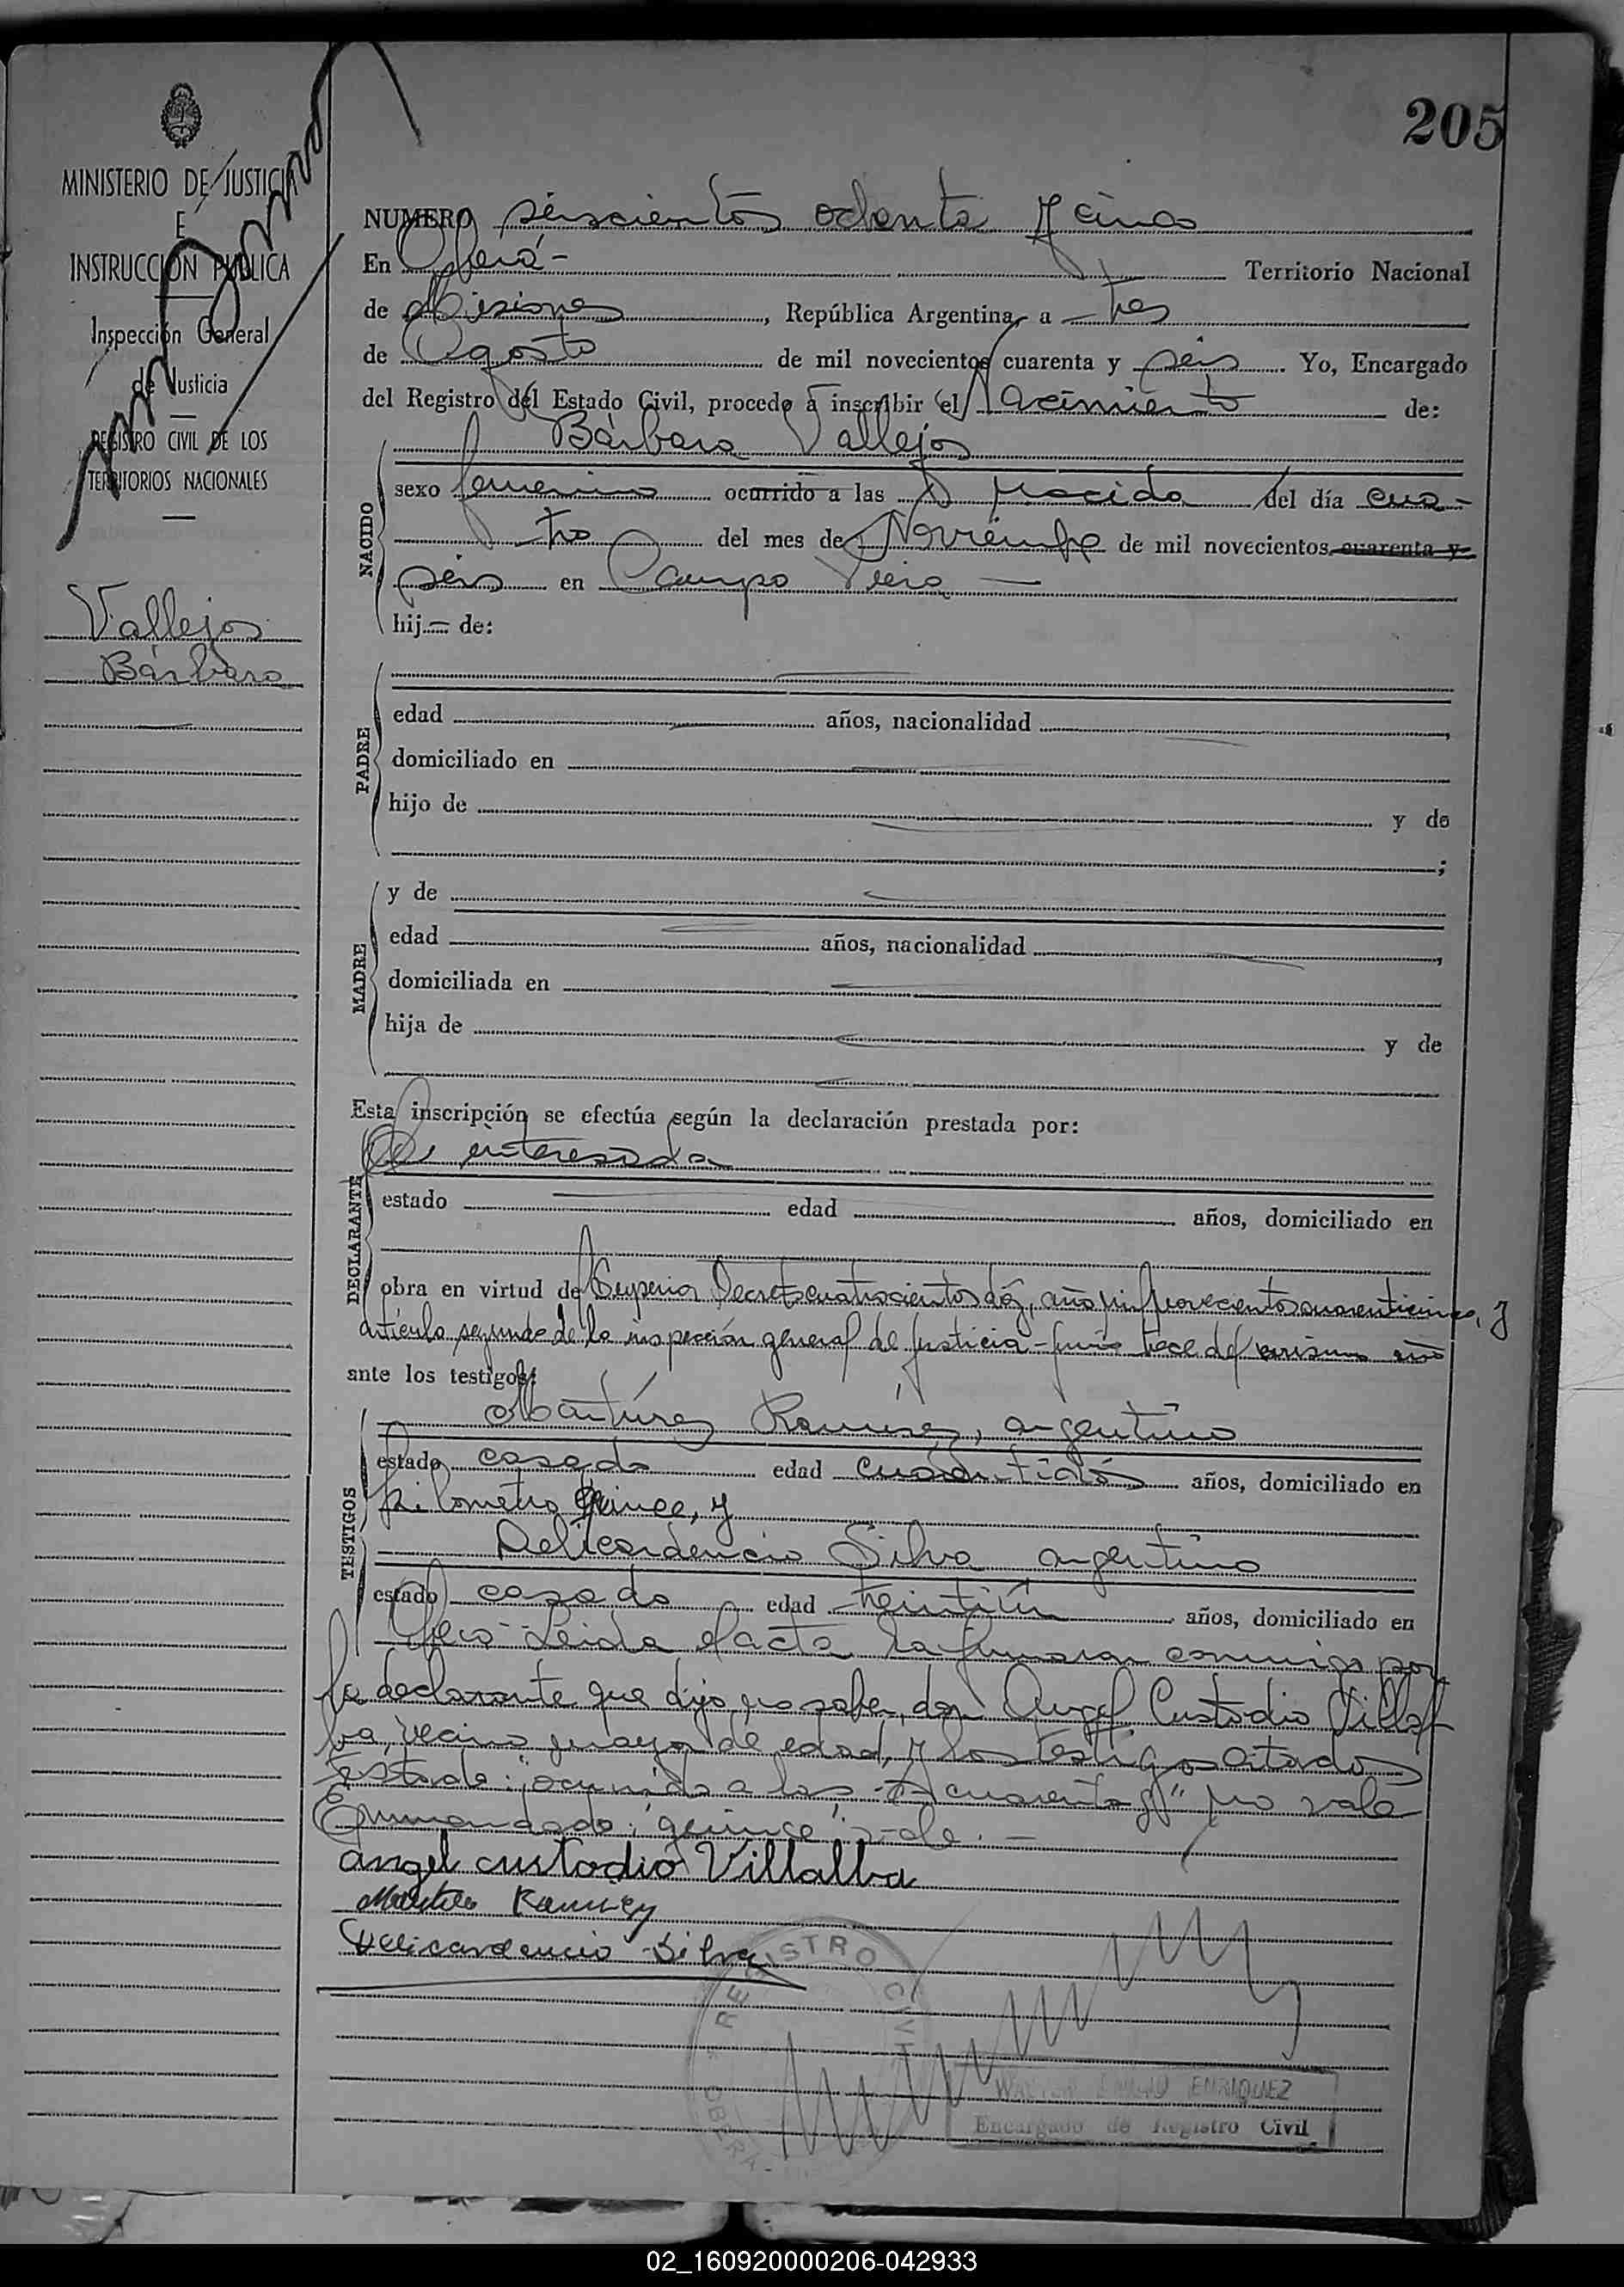 205
MINISTERIO DE JUSTICIA
E
INSTRUCCION PUBLICA
Inspección General
de Justicia
REGISTRO CIVIL DE LOS
TERRITORIOS NACIONALES
Vallejos
Bárbara
NUMERO seiscientos ochenta y cinco
En Oberá - Territorio Nacional
de Misiones, República Argentina, a tres
de Agosto de mil novecientos cuarenta y seis. Yo, Encargado
del Registro del Estado Civil, procedo a inscribir el Nacimiento de:
Bárbara Vallejos
NACIDO
sexo femenino ocurrido a las nacida del día cua-
tro del mes de Noviembre de mil novecientos cuarenta y
seis en Campo Viera
hij de:
PADRE
edad años, nacionalidad
domiciliado en
hijo de y de
;
MADRE
y de
edad años, nacionalidad
domiciliada en
hija de y de
Esta inscripción se efectúa según la declaración prestada por:
DECLARANTE
La interesada
estado edad años, domiciliado en
obra en virtud del Superior Decreto cuatrocientos dos, año mil novecientos cuarenticinco, y
artículo segundo de la inspección general de justicia - junio trece del mismo año
ante los testigos:
TESTIGOS
Ramírez, argentino
estado casado edad años, domiciliado en
kilometro quince, y
Delicardencio Silva argentino
estado casado edad treintiún años, domiciliado en
Leida el acta la firmaron conmigo por
la declarante que dijo no saber, don Angel Custodio Villal
ba, vecino mayor de edad, y los testigos citados
Testado: "ocurrido a las - cuarenta y" no vale
Enmendado: "quince": vale. -
angel custodio Villalba
Ramirez
Delicardencio Silva
REGISTRO CIVIL
OBERA
ENRIQUEZ
Encargado de Registro Civil
02_160920000206-042933